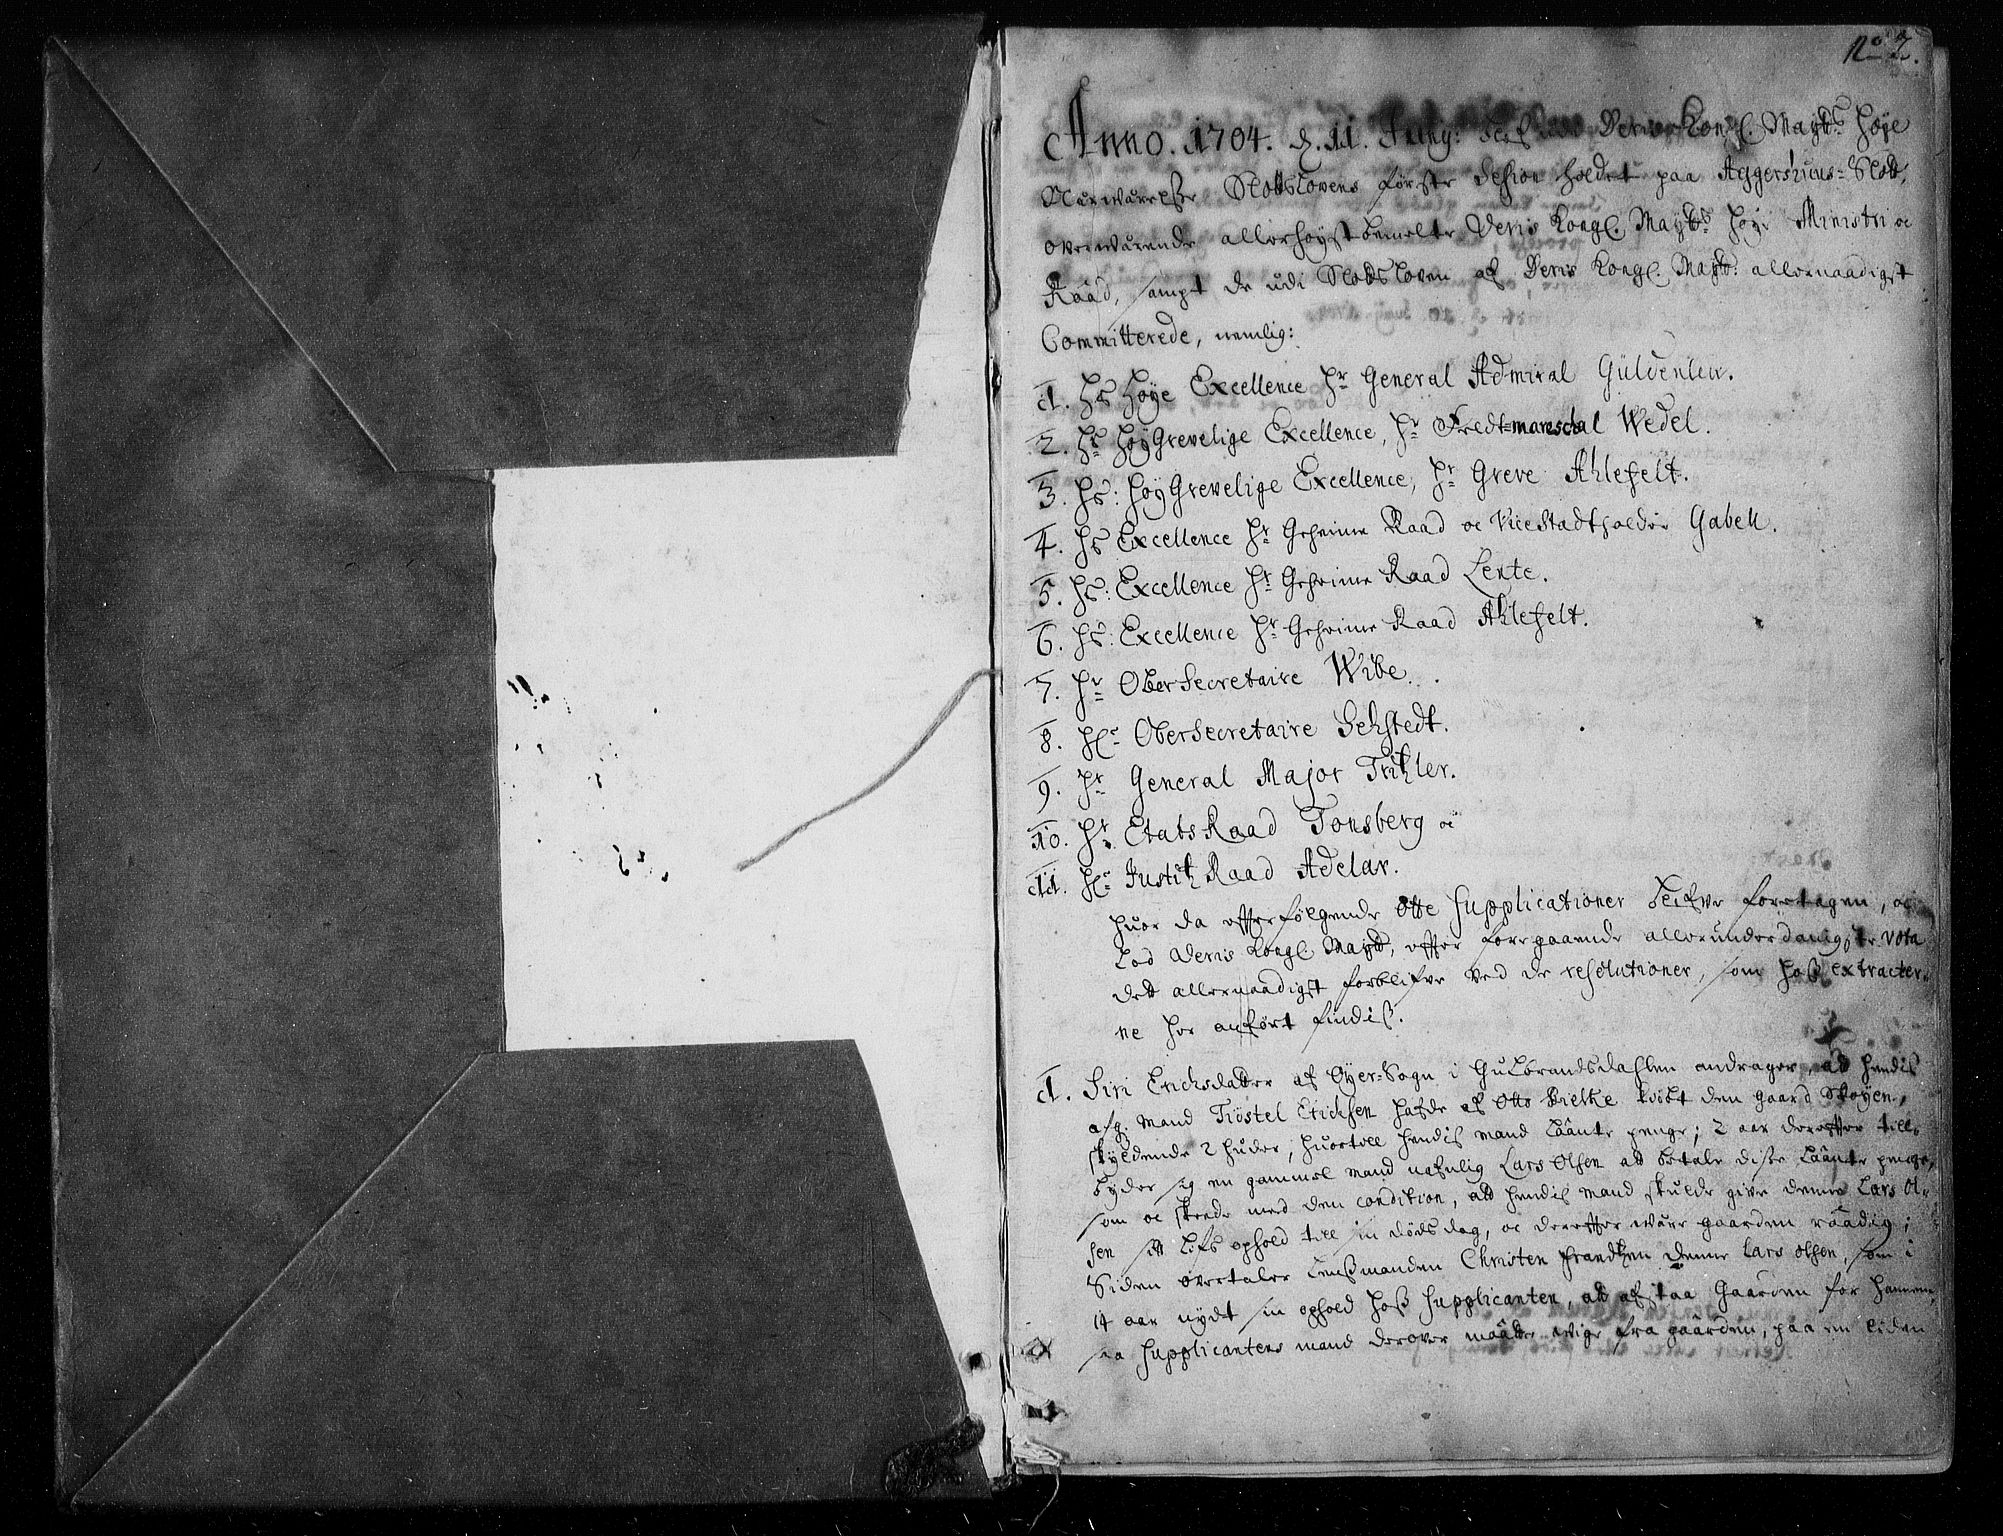 No 2.
Anno. 1704. d. 11. Junij: blef udi Deris Kongl. Maÿts høje
Nærwærelse Slodslovens første Session holdet paa Aggershuus-Slott,
overwærende allerhøystbemelte Deris Kongl. Maÿts høje Ministri oc
Raad, sampt de udi Slodsloven af Deris Kongl. Maÿt. allernaadigst
Committerede, nemlig:
1. Hs Høye Excellence Hr General Admiral Güldenlew.
2. Hs HøyGrevelige Excellence, Hr Feldtmareschal Wedel.
3. Hs: HøyGrevelige Excellence, Hr Greve Ahlefelt.
4. Hs Excellence Hr Geheime Raad oc ViceStadtholder Gabell.
5. Hs: Excellence Hr Geheime Raad Lente.
6. Hs: Excellence Hr Geheime Raad Ahlefelt.
7. Hr OberSecretaire Wibe.
8. Hr OberSecretaire Sehstedt.
9. Hr General Major Tritzler.
10. Hr EtatsRaad Tonsberg oc
11. Hr JustitzRaad Adelar.
huor da efterfølgende otte Supplicationer blefve foretagen, oc
lod Deris Kongl. Maytt, efter foregaaende allerunderdanigste vota
det allernaadigst forblifve ved de resolutioner, som hoß extracter-
ne her anført findiß.
1. Siri Erichsdatter af Øyer-Sogn i Gulbrandsdahlen andrager, at hendis
afg. mand Tiøstel Erichsen hafde af Otto Bielke kiøbt den gaard Skoyen,
skyldende 2 huder, huortill hendis mand laante penge; 2 aar derefter till-
byder sig en gammel mand nafnlig Lars Olsen at betale disse laante penge,
som oc skeede med den condition, att hendis mand skulde give denne Lars Ol-
sen sit lifs ophold till sin dødsdag, oc derefter være gaarden raadig;
Siden overtaler lensmanden Christen Frandzen denne Lars Olsen, som i
14 aar nydt sin ophold hoß Supplicanten, att afstaa Gaarden for hannem,
saa Supplicantens mand derover maatte vige fra gaarden, paa en liden